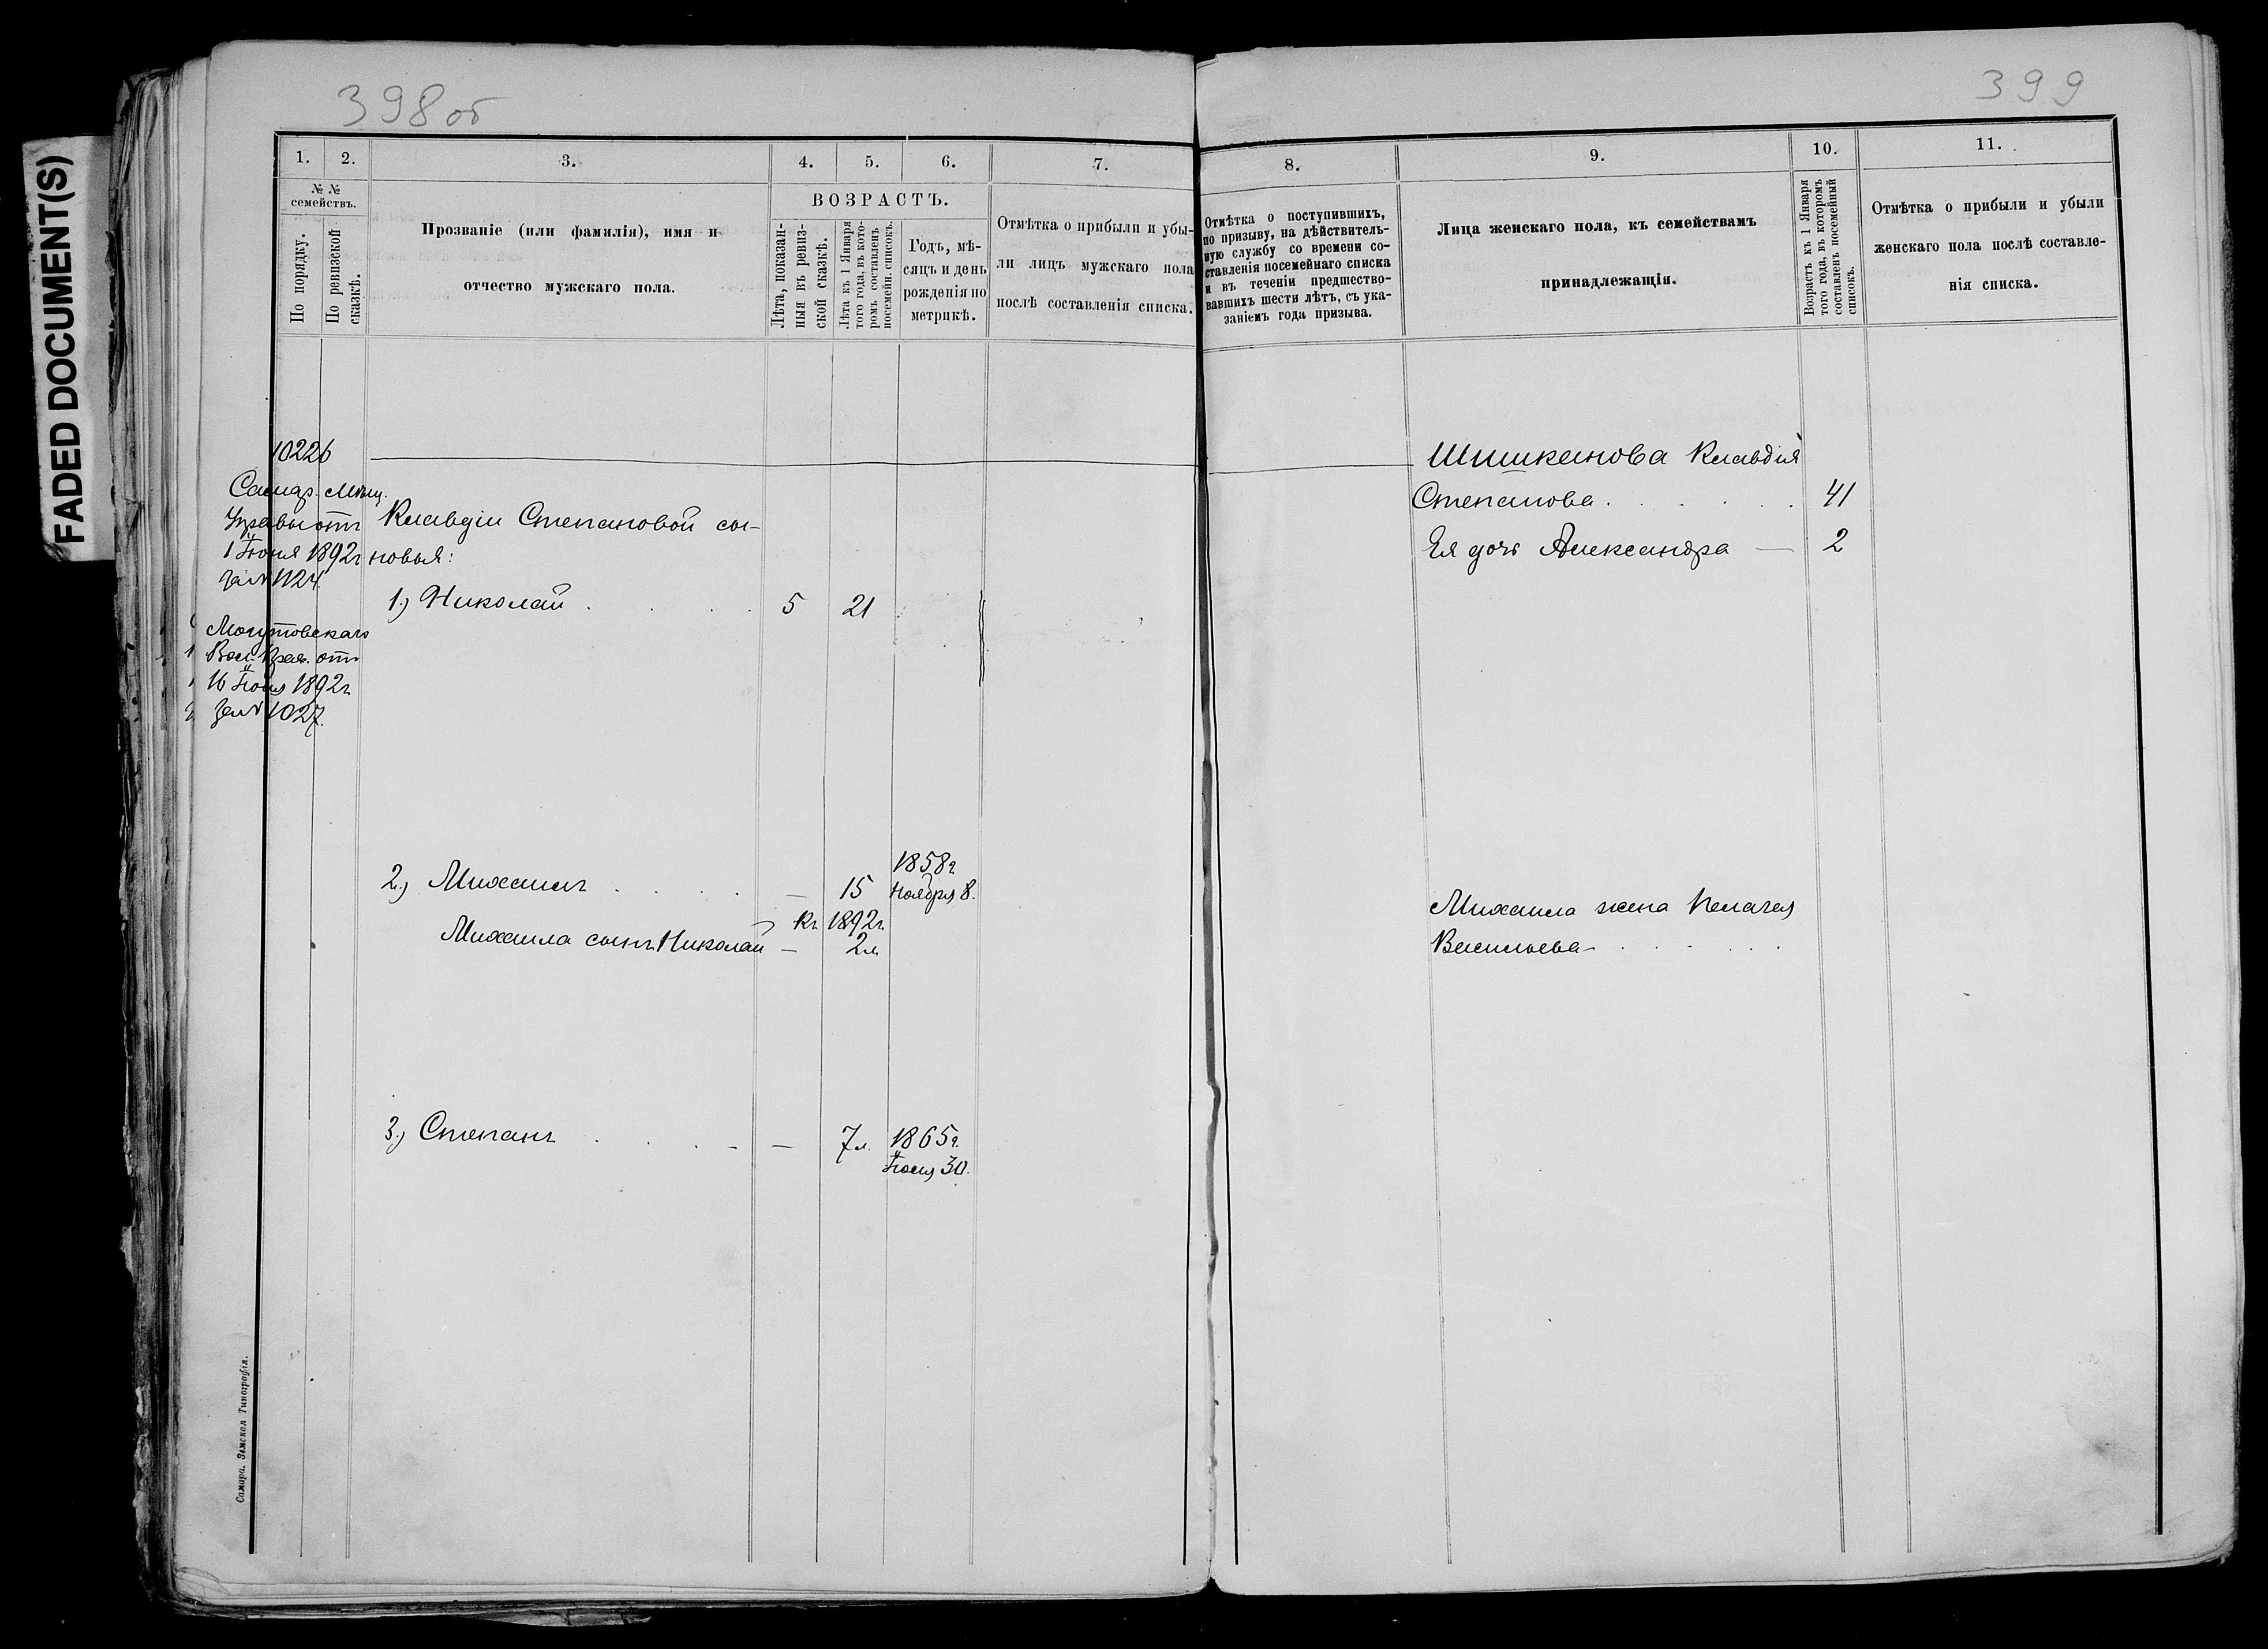 FADED DOCUMENT(S)
398 об
399
1.
2.
3.
4.
5.
6.
7.
8.
9.
10.
11.
№ №
семействъ.
По порядку.
По ревизской
сказкѣ.
Прозваніе (или фамилія), имя и
отчество мужскаго пола.
ВОЗРАСТЪ.
Лѣта, показан-
ныя въ ревиз-
ской сказкѣ.
Лѣта къ 1 Января
того года, въ кото-
ромъ составленъ
посемейн. списокъ.
Годъ, мѣ-
сяцъ и день
рожденія по
метрикѣ.
Отмѣтка о прибыли и убы-
ли лицъ мужскаго пола
послѣ составленія списка.
Отмѣтка о поступившихъ,
по призыву, на дѣйствитель-
ную службу со времени со-
ставленія посемейнаго списка
и въ теченіи предшество-
вавшихъ шести лѣтъ, съ ука-
заніемъ года призыва.
Лица женскаго пола, къ семействамъ
принадлежащія.
Возрастъ къ 1 Января
того года, въ которомъ
составленъ посемейный
списокъ.
Отмѣтка о прибыли и убыли
женскаго пола послѣ составле-
нія списка.
10226
Самар. Мѣщ.
Управы отъ
1 Іюня 1892г
за № 1124.
Могутовскаго
Вол. Прав. отъ
16 Іюня 1892г
за № 1027.
Клавдіи Степановой сы-
новья:
1.) Николай 5 21
2.) Михаилъ — 15 1858г
Ноября 8.
Къ 1892г.
Михаила сынъ Николай — 2л
3.) Степанъ — 7л. 1865г.
30.
Шишканова Клавдія
Степанова 41
Ея дочь Александра — 2
Михаила жена Пелагея
Васильева
Самара. Земская Типографія.